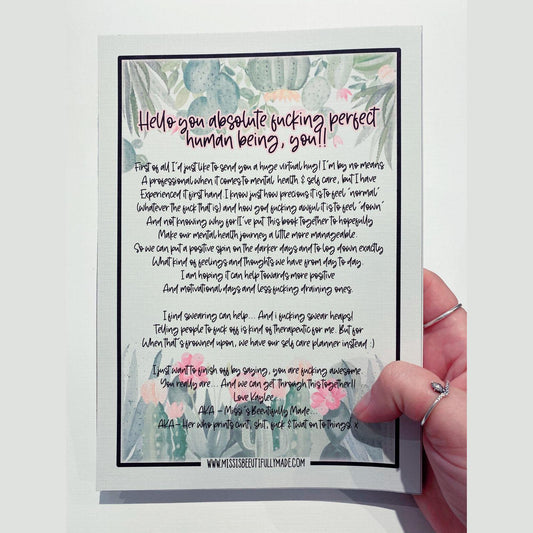 Hello you absolute fucking perfect
human being, you!!
First of all I'd just like to send you a huge virtual hug! I'm by no means
A professional when it comes to mental health & self care, but I have
Experienced it first hand. I know just how precious it is to feel "normal"
(Whatever the fuck that is) and how god fucking awful it is to feel "down"
And not knowing why for. I've put this book together to hopefully
Make our mental health journey a little more manageable.
So we can put a positive spin on the darker days and to log down exactly
What kind of feelings and thoughts we have from day to day.
I am hoping it can help towards more positive
And motivational days and less fucking draining ones.
I find swearing can help... And i fucking swear heaps!
Telling people to fuck off is kind of therapeutic for me. But for
When that's frowned upon, we have our self care planner instead :)
I just want to finish off by saying, you are fucking awesome.
You really are... And we can get through this together!!
Love Kaylee
AKA - Missi's Beeutifully Made...
AKA - Her who prints cunt, shit, fuck & twat on to things! x
WWW.MISSISBEEUTIFULLYMADE.COM